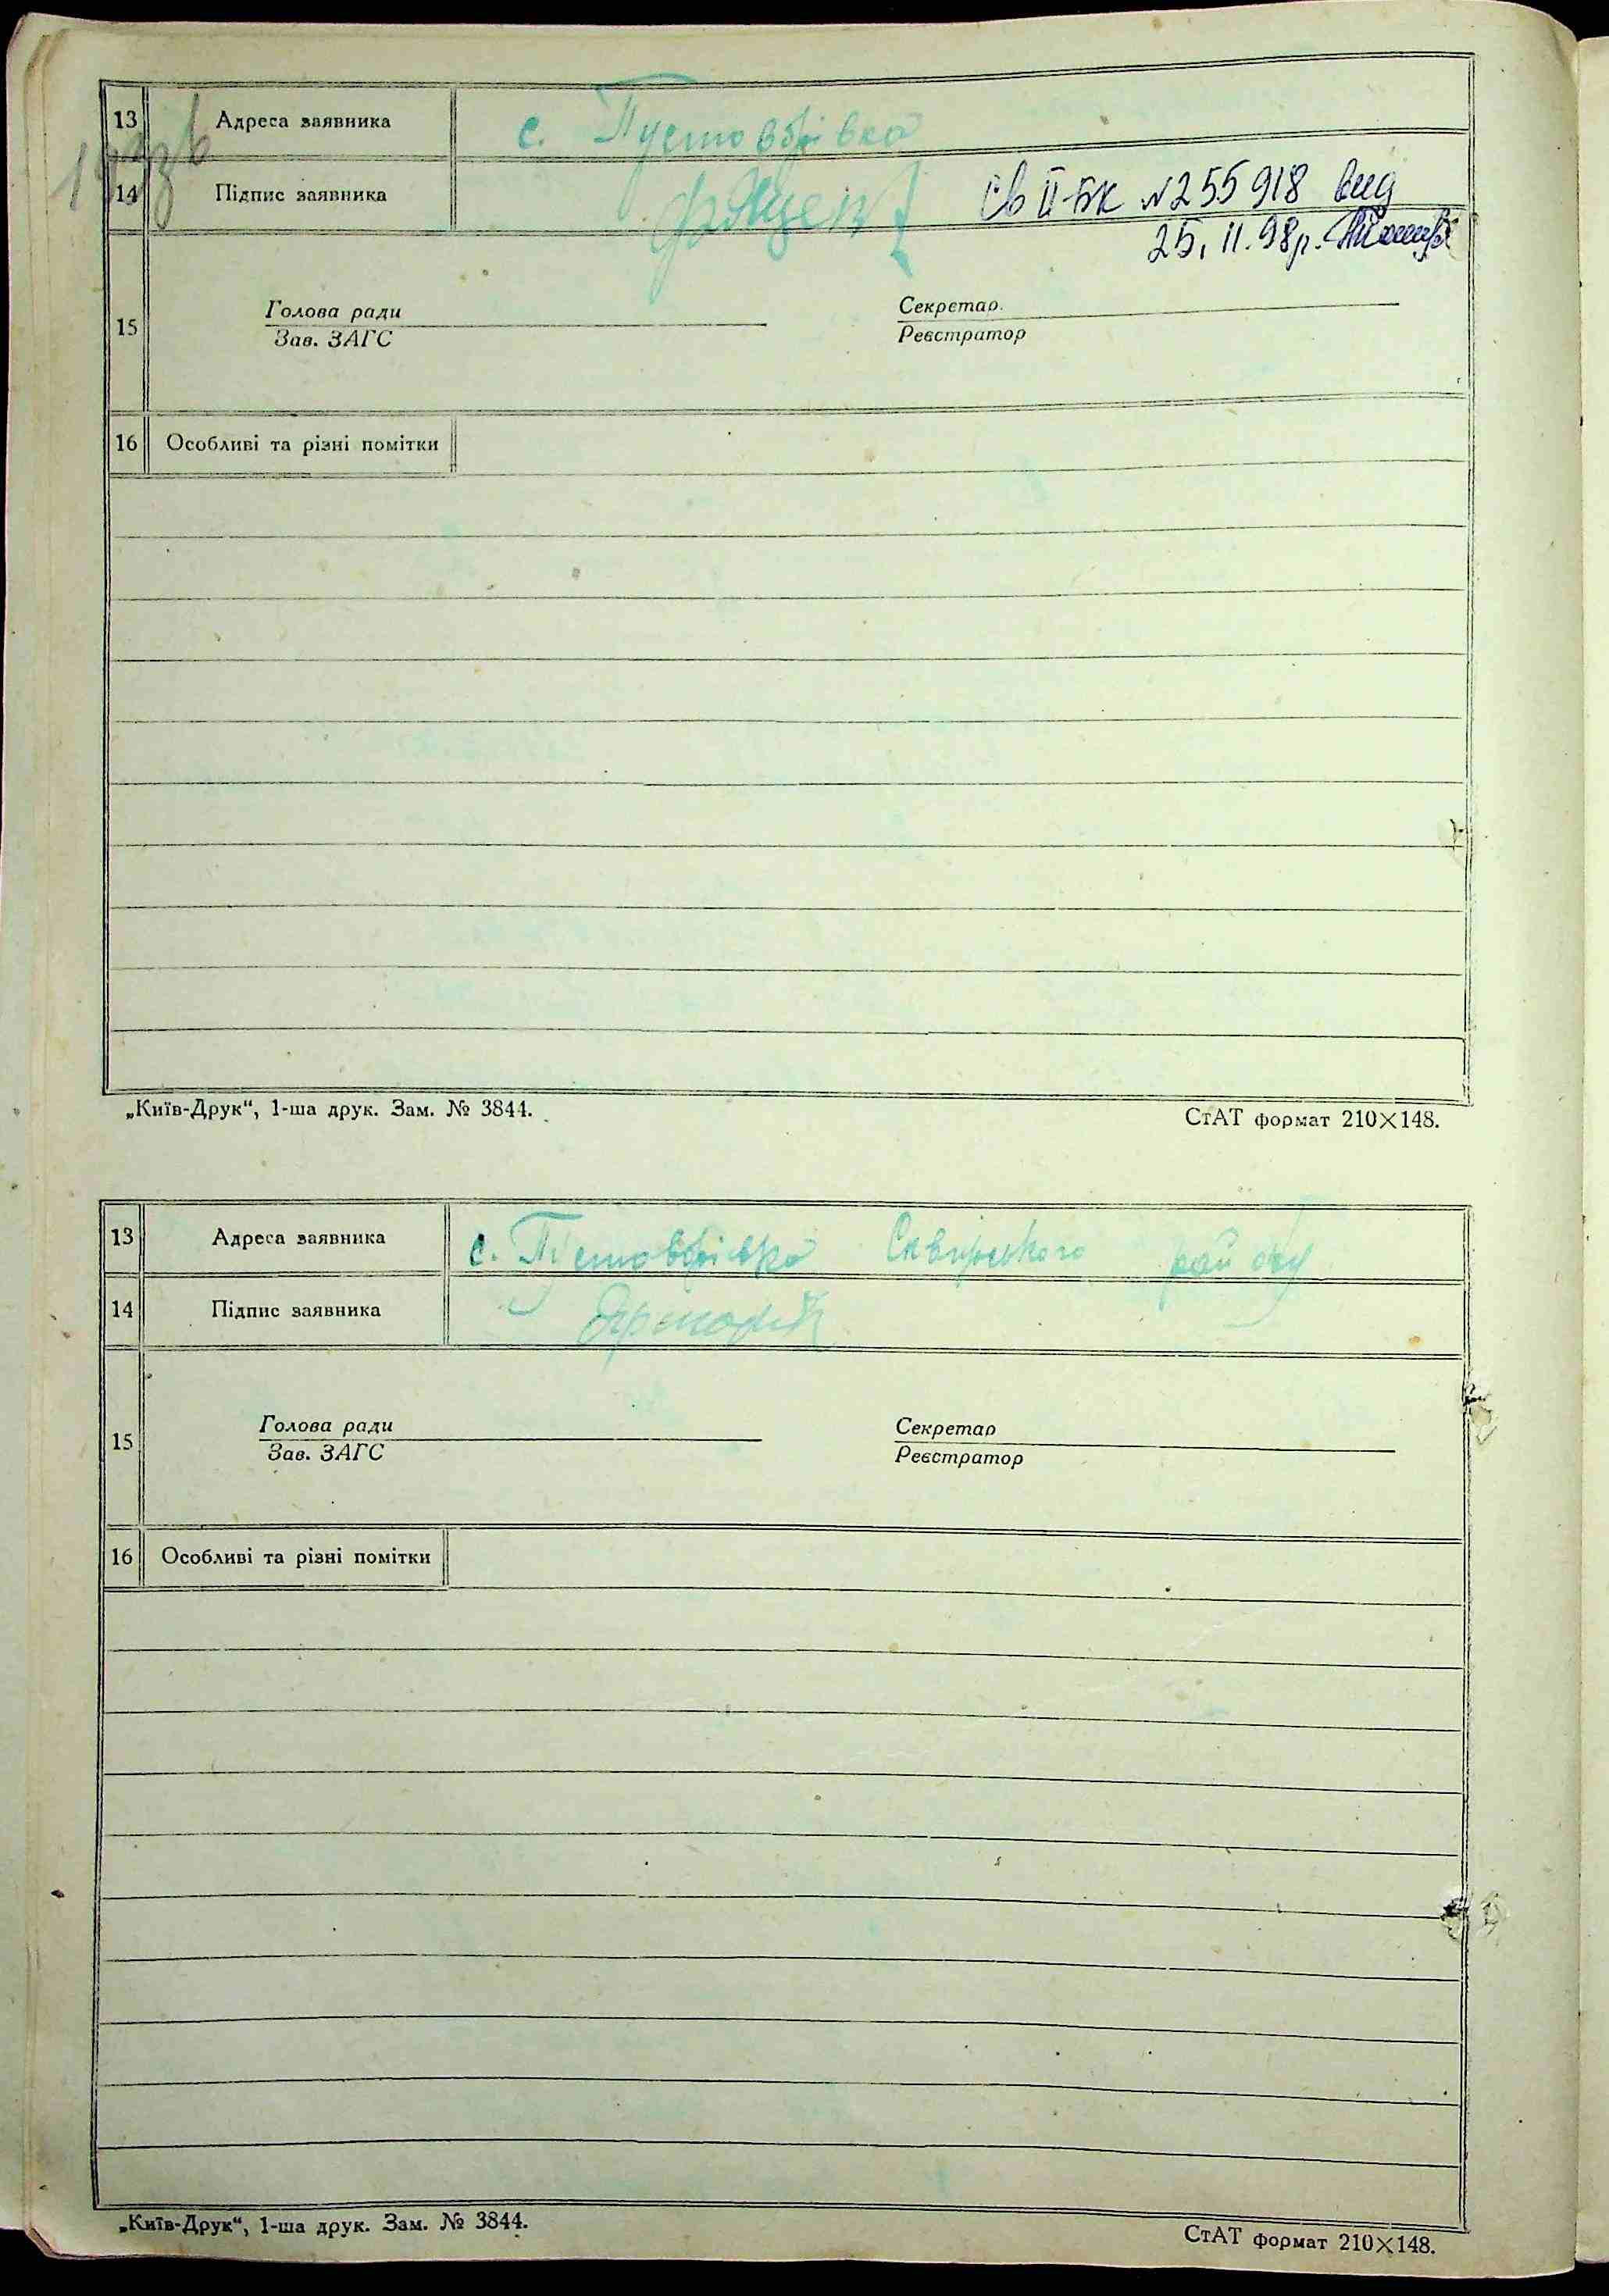 13 Адреса заявника с. Пустоврівка
14 Підпис заявника Св ІІ-БК №255918 вид
25.11.98р.
15 Голова ради Секретар
Зав. ЗАГС Реєстратор
16 Особливі та різні помітки
„Київ-Друк“, 1-ша друк. Зам. № 3844. СтАТ формат 210×148.
13 Адреса заявника с. Пустоврівка Сквирського району
14 Підпис заявника
15 Голова ради Секретар
Зав. ЗАГС Реєстратор
16 Особливі та різні помітки
„Київ-Друк“, 1-ша друк. Зам. № 3844. СтАТ формат 210×148.